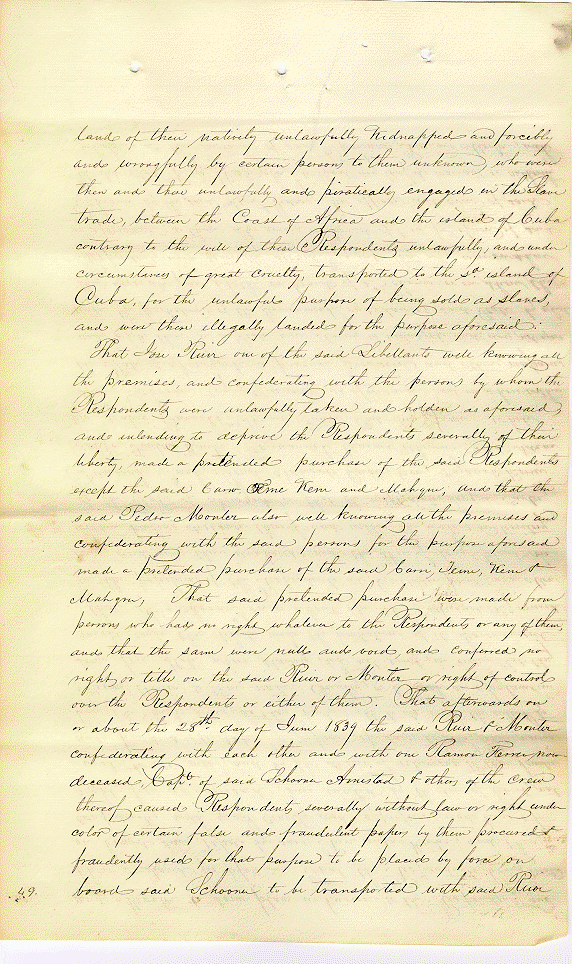 land of their nativity unlawfully kidnapped and forcibly
and wrongfully by certain persons to them unknown, who were
then and there unlawfully and piratically engaged in the Slave
trade, between the Coast of Africa and the island of Cuba
contrary to the will of these Respondents unlawfully, and under
circumstances of great cruelty, transported to the sd. island of
Cuba, for the unlawful purpose of being sold as slaves,
and were there illegally landed for the purpose aforesaid.
That Jose Ruiz one of the said Libellants well knowing all
the premises, and confederating with the persons by whom the
Respondents were unlawfully taken and holden as aforesaid
and intending to deprive the Respondents severally of their
liberty, made a pretended purchase of the said Respondents
except the said Carr Teme Kene and Mahgru, and that the
said Pedro Montez also well knowing all the premises and
confederating with the said persons for the purpose aforesaid
made a pretended purchase of the said Carr, Teme, Kene &
Mahgru, That said pretended purchase were made from
persons who had no right whatever to the Respondents or any of them
and that the same were null and void, and conferred no
right or title on the said Ruiz or Montez or right of control
over the Respondents or either of them. That afterwards on
or about the 28th day of June 1839 the said Ruiz & Montez
confederating with each other and with one Ramon Ferrer now
deceased, Capt. of said Schooner Amistad & others of the crew
thereof caused Respondents severally without law or right under
color of certain false and fraudulent papers by them procured &
fraudently used for that purpose to be placed by force on
49. board said Schooner to be transported with said Ruiz